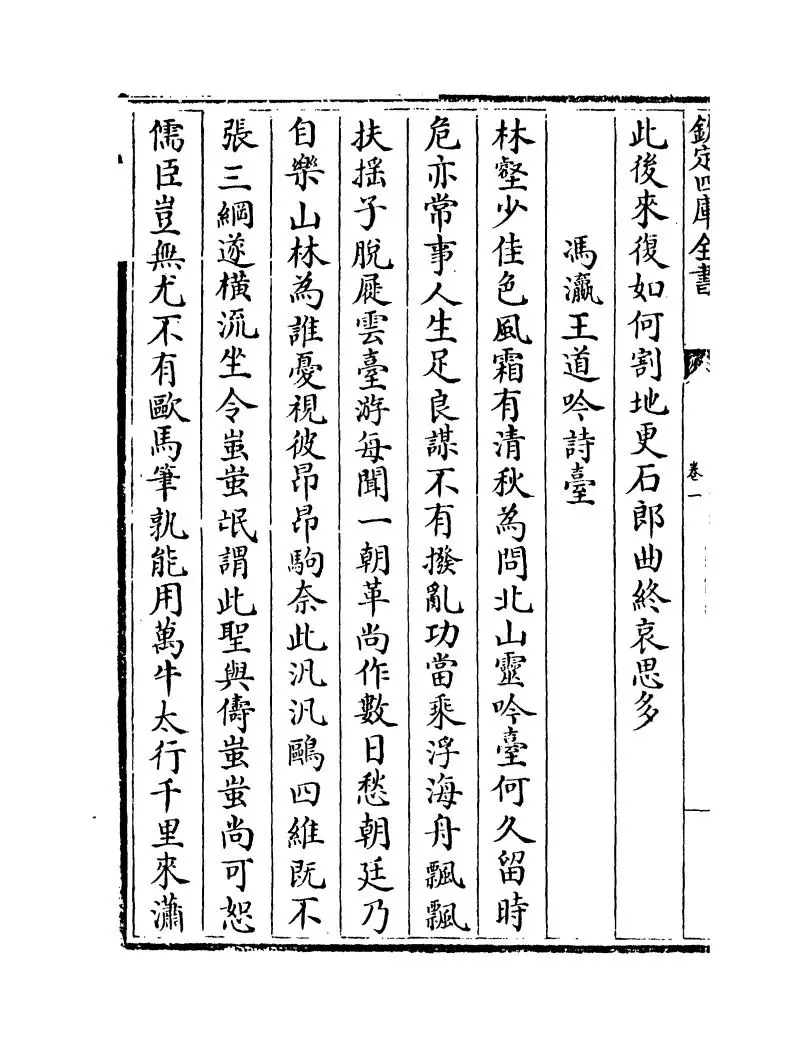 欽定四庫全書
卷一
此後來復如何割地更石郎曲終哀思多
馮瀛王道吟詩臺
林壑少佳色風霜有清秋為問北山靈吟臺何久留時
危亦常事人生足良謀不有撥亂功當乘浮海舟飄飄
扶搖子脫屣雲臺游每聞一朝革尚作數日愁朝廷乃
自樂山林為誰憂視彼昂昂駒奈此汎汎鷗四維既不
張三綱遂橫流坐令蚩蚩氓謂此聖與儔蚩蚩尚可恕
儒臣豈無尤不有歐馬筆孰能用萬牛太行千里來瀟